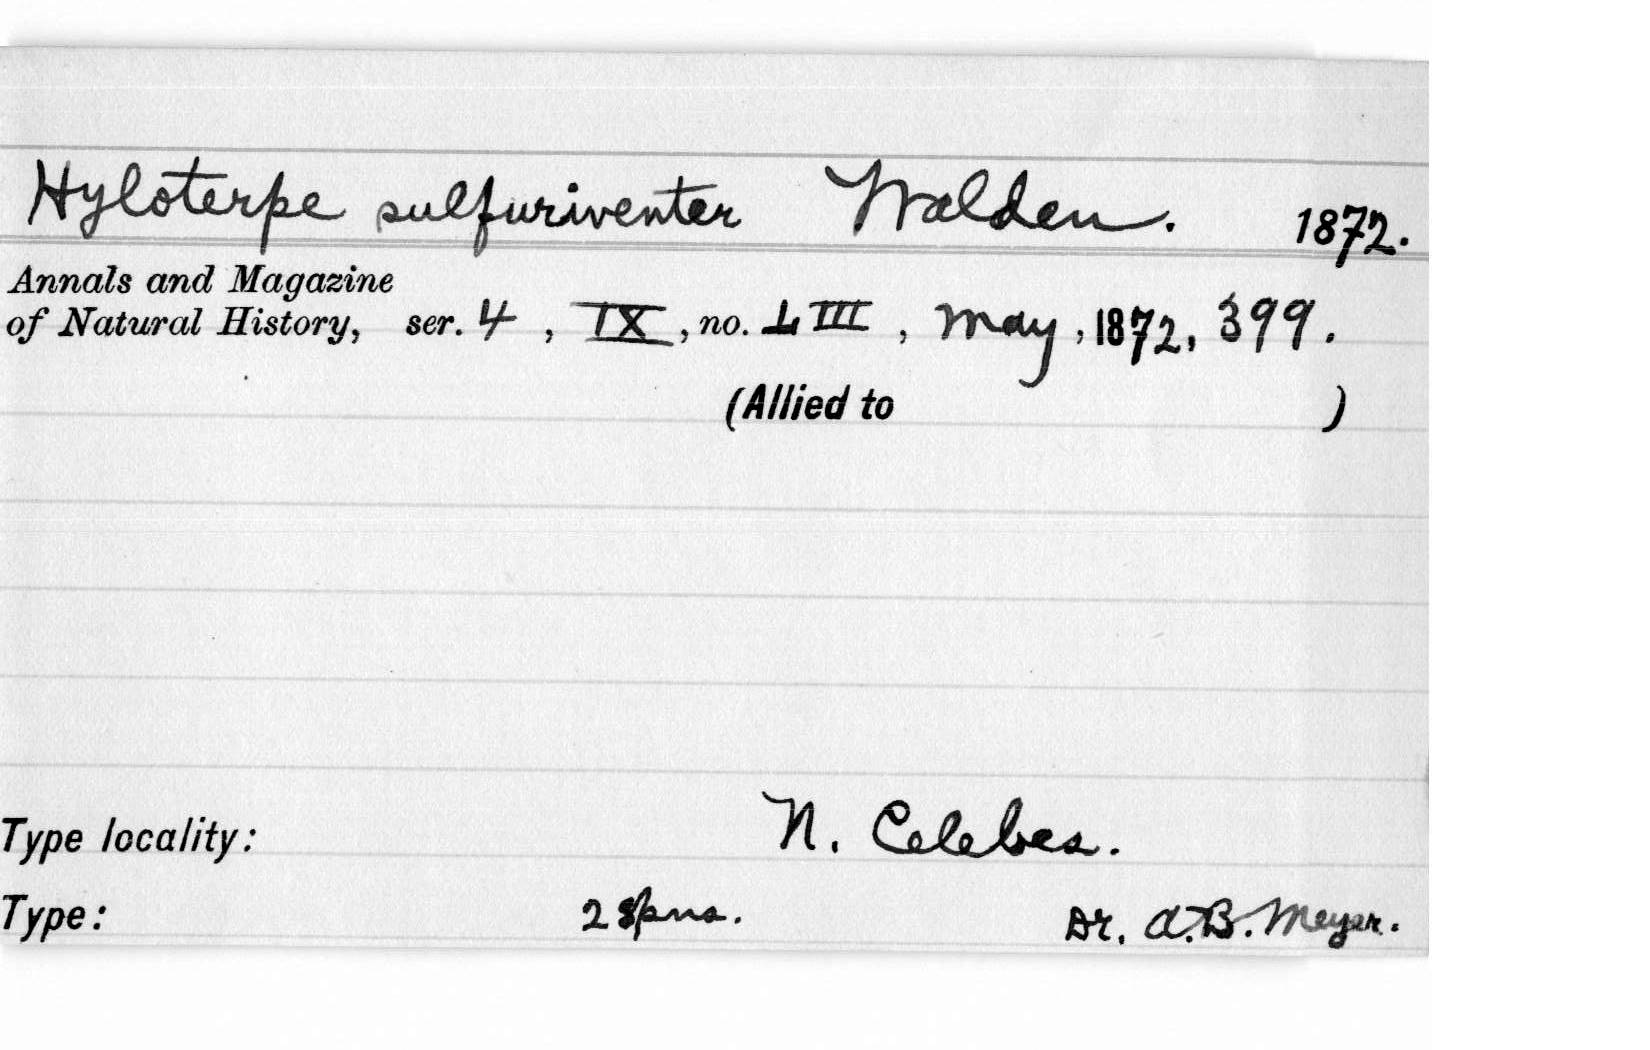 Hyloterpe sulfuriventer Walden. 1872.
Annals and Magazine
of Natural History, ser. 4, IX, no. LIII, May, 1872, 399.
(Allied to )
Type locality: N. Celebes.
Type: 2 spns. Dr. A.B. Meyer.